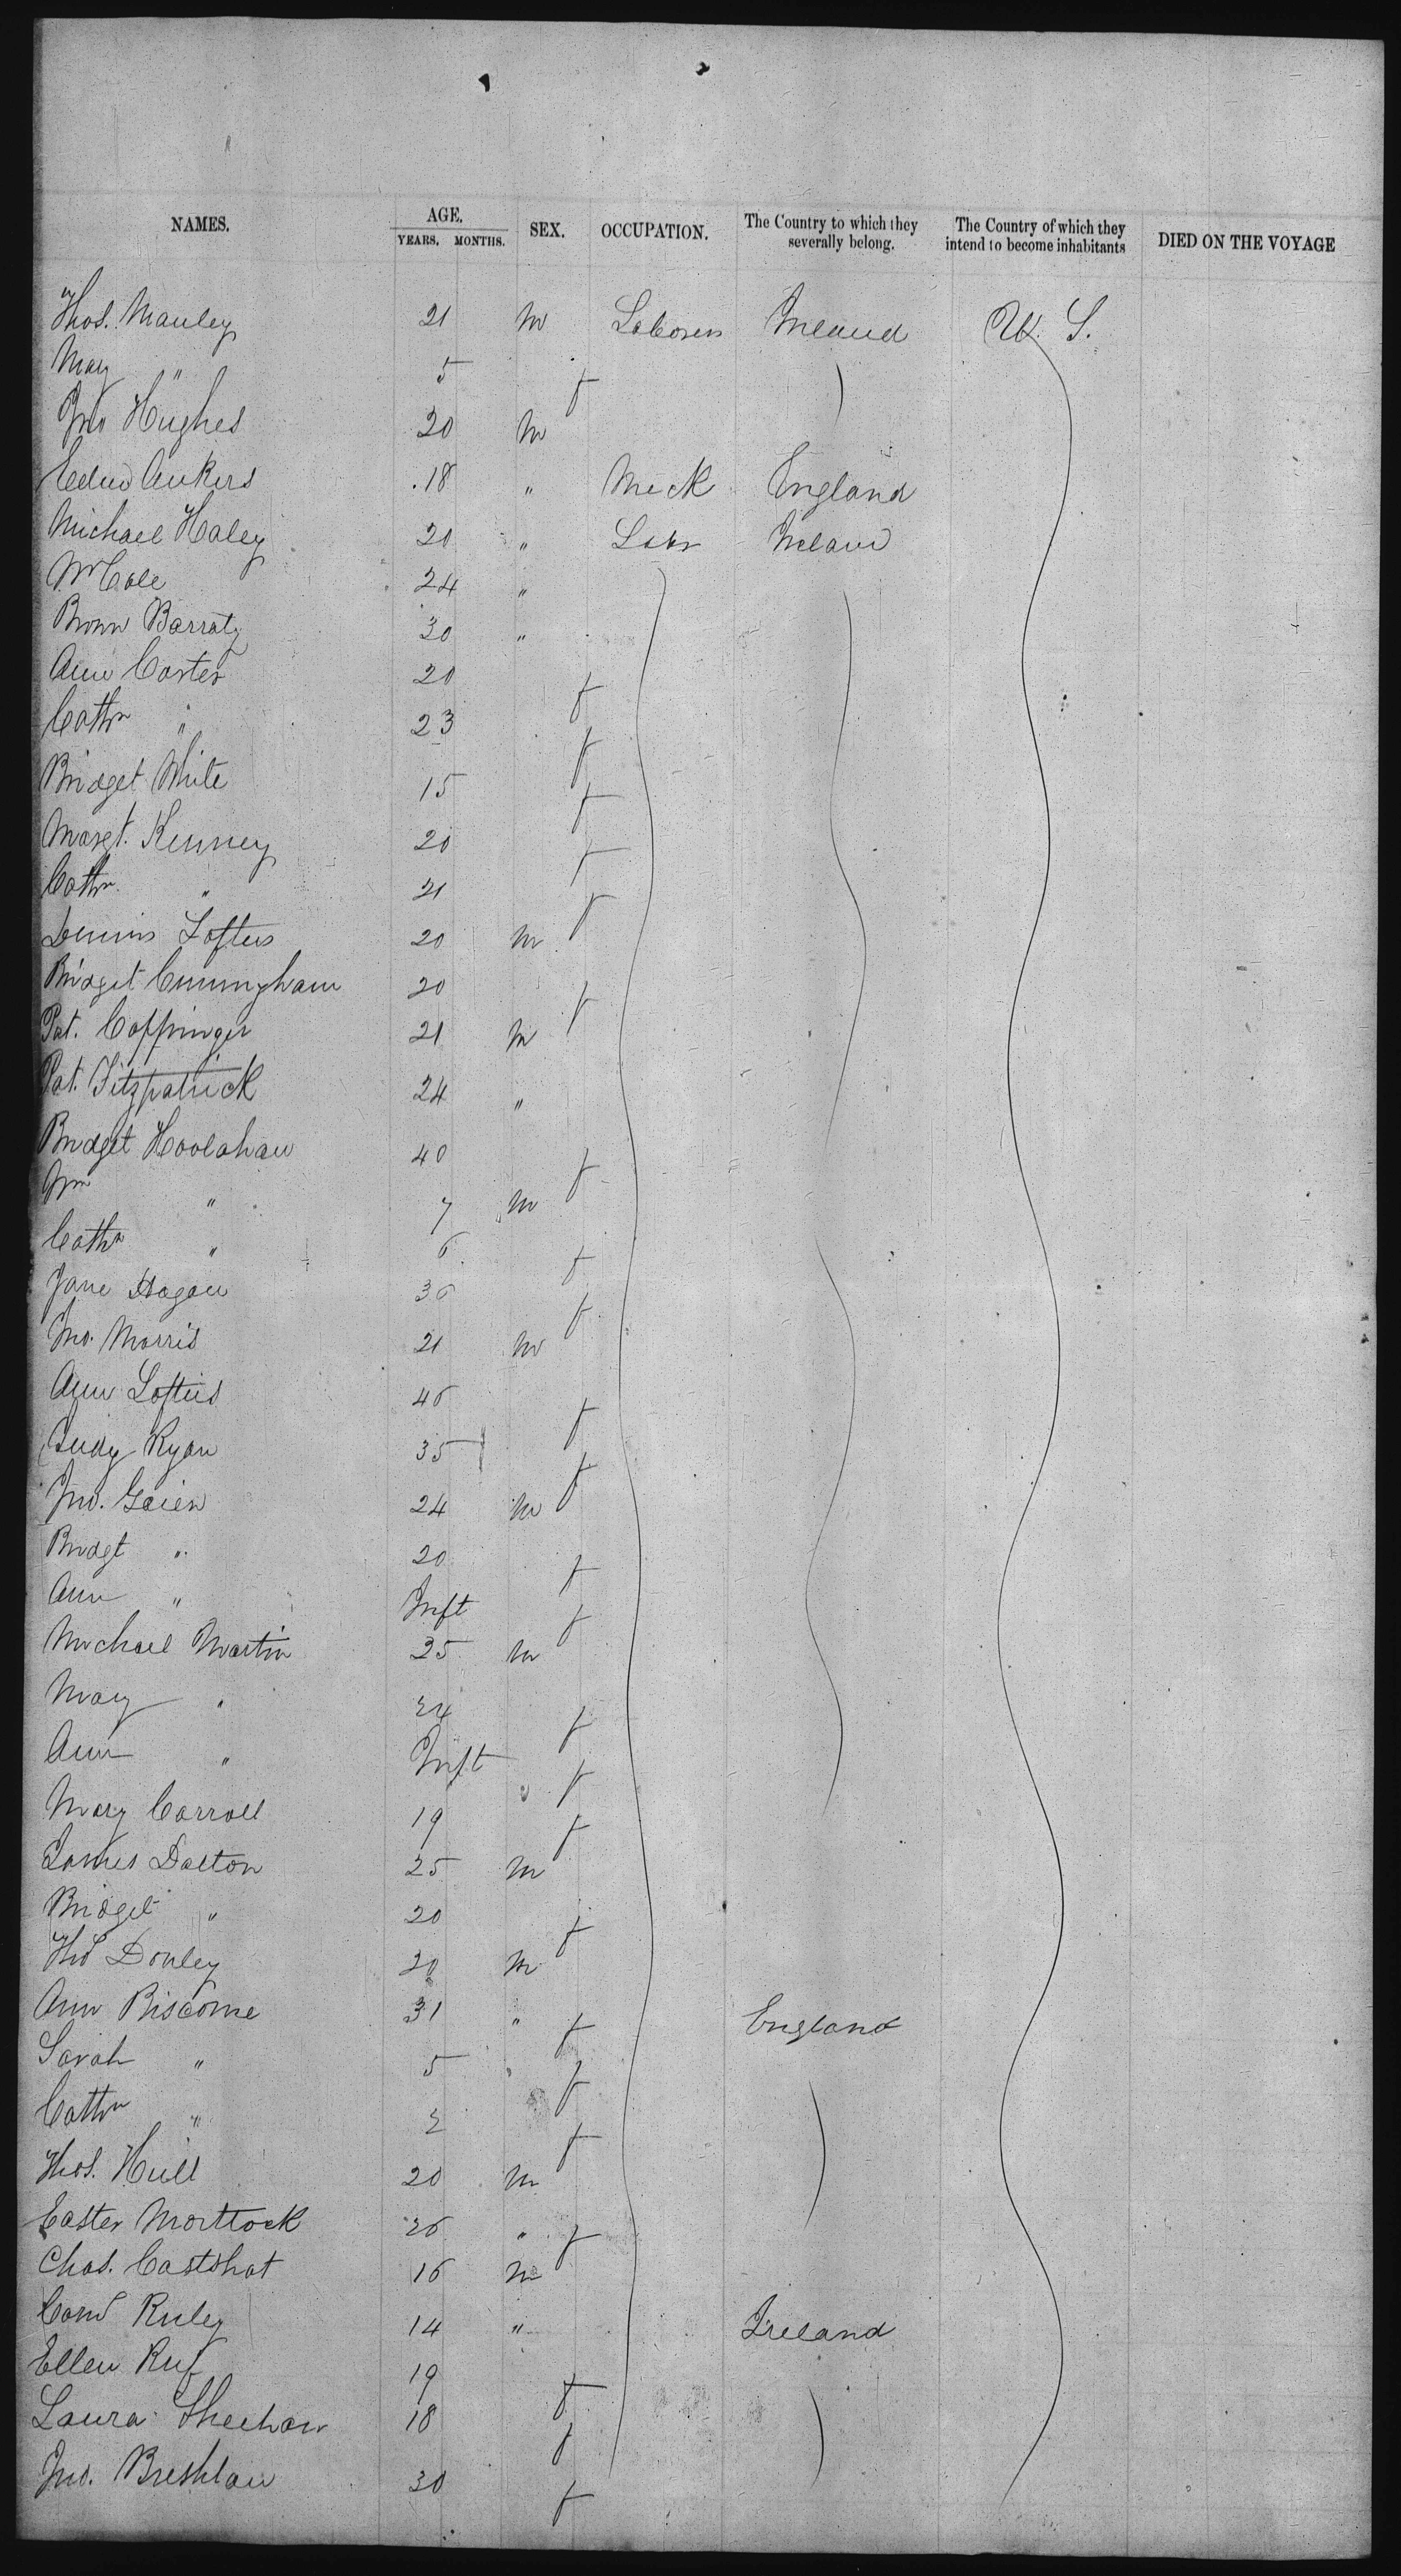 NAMES. AGE. YEARS. MONTHS. SEX. OCCUPATION. The Country to which they severally belong. The Country of which they intend to become inhabitants DIED ON THE VOYAGE
Thos. Manley 21 M Laborer Ireland U. S.
May " 5 f
Jno Hughes 20 M
Edwd Ankers 18 " Meck England
Michael Haley 20 " Labr Ireland
Wm Cole 24 "
Barraty 30 "
Ann Carter 20 f
Cathn " 23 f
Bridget White 15 f
Margt. Kenney 20 f
Cathn " 21 f
Dennis Loftus 20 M
Bridget Cunningham 20 f
Pat. Coppinger 21 M
Pat. Fitzpatrick 24 "
Bridget Hoolahan 40 f
" 7 M
Cathn " 6 f
Jane Hagan 36 f
Jno. Morris 21 M
Ann Loftus 46 f
Judy Ryan 35 f
Jno. 24 M
Bridgt " 20 f
Ann " Inft f
Michael Martin 25 M
Mary " 24 f
Ann " Inft f
Mary Carroll 19 f
James Dalton 25 M
Bridget " 20 f
Thos Donley 20 M
Ann Biscome 31 " f England
Sarah " 5 f
Cathn " 2 f
Thos. Hull 20 M
Easter Morttock 26 " f
Chas. Castshat 16 M
Ruley 14 " Ireland
Ellen 19 f
Laura Sheehan 18 f
Jno. Breshlau 30 f